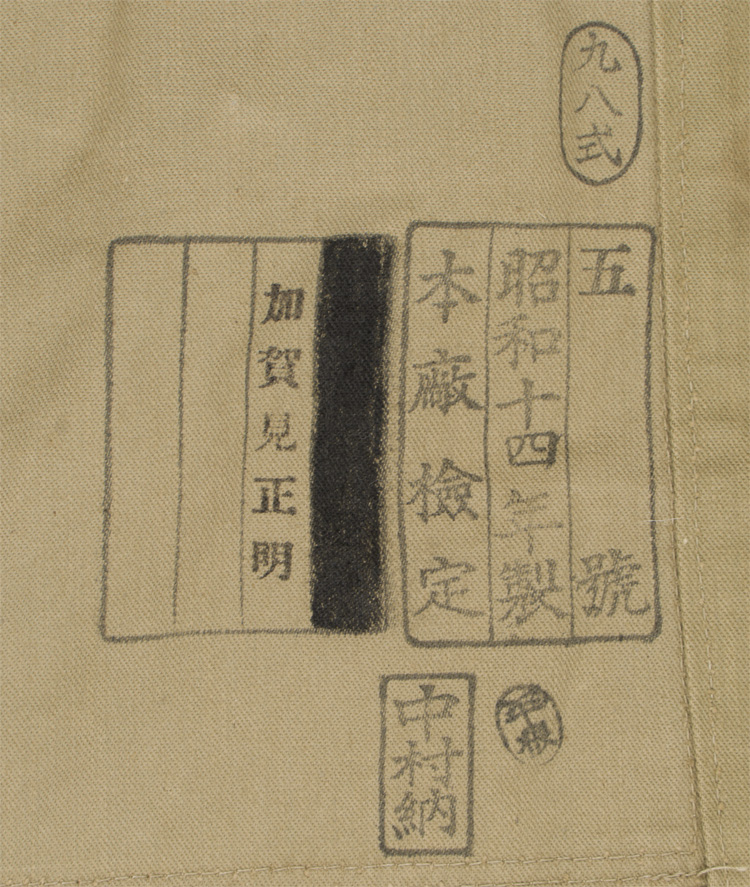 九八式
五號
昭和十四年製
本廠檢定
加賀見正明
中村納